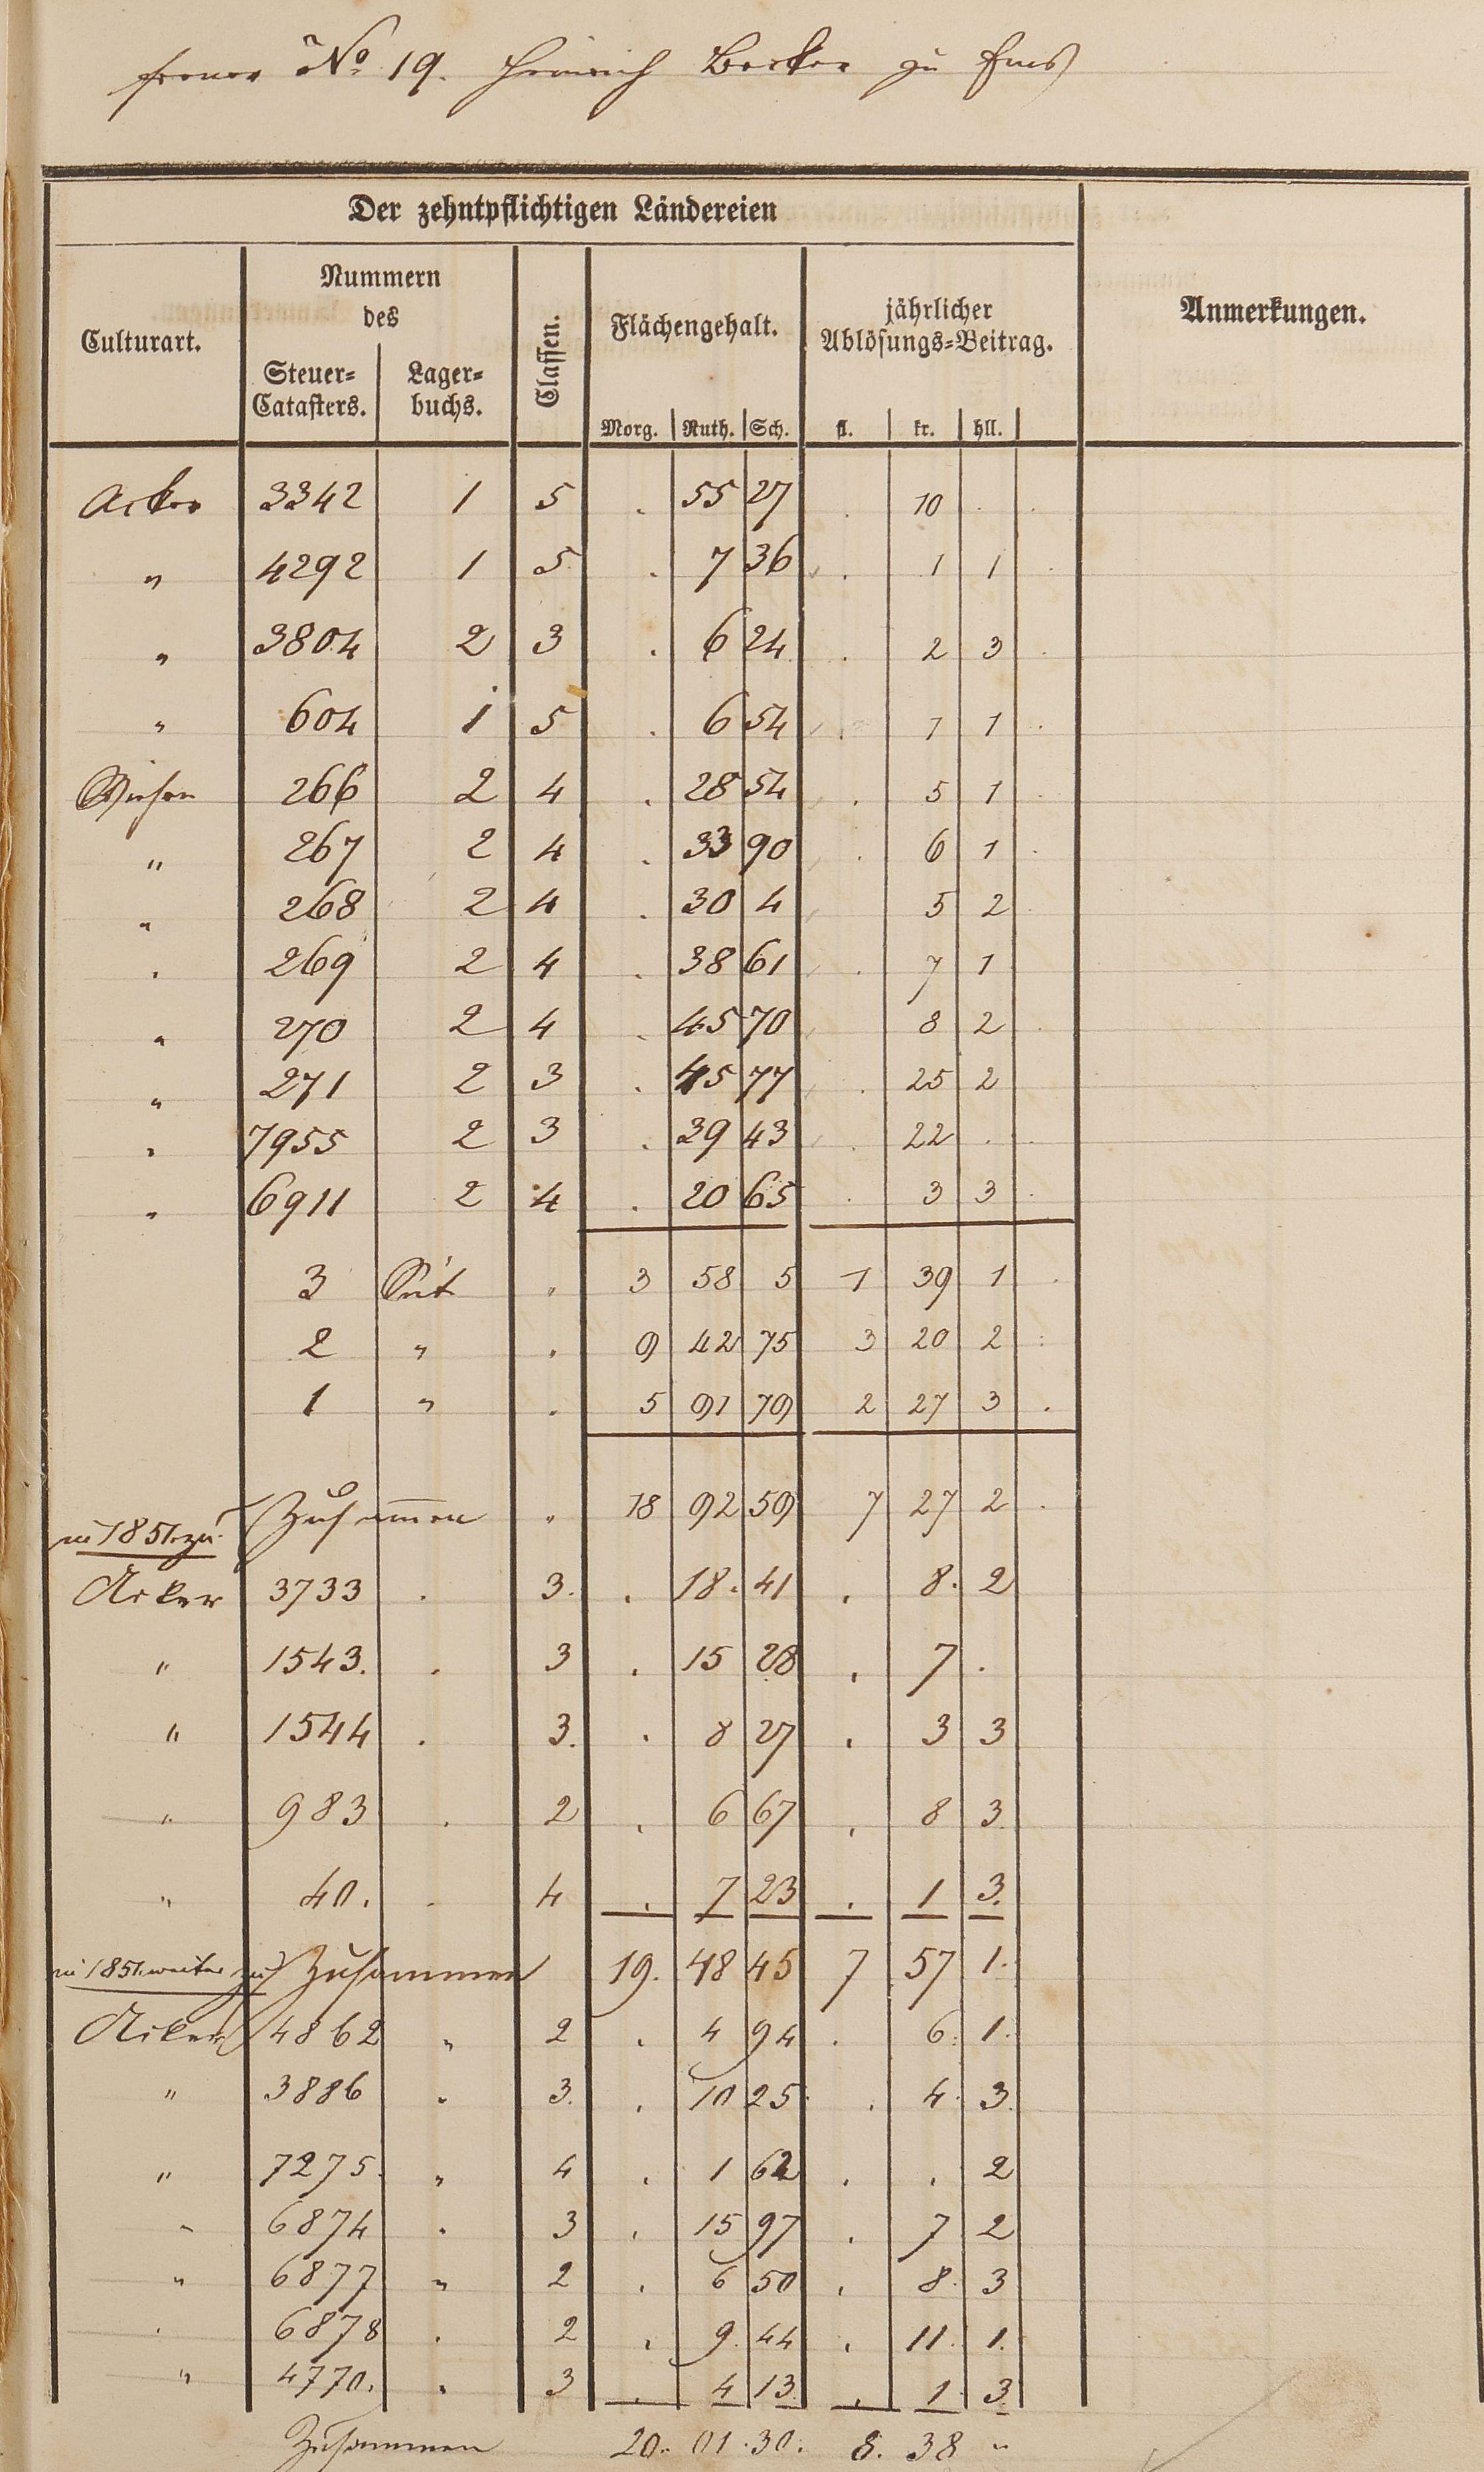 ferner No 19. Heinrich Becker zu Ems
Der zehntpflichtigen Ländereien
Culturart. Nummern des Steuer-Catasters. Lager-buchs. Classen. Flächengehalt. Morg. Ruth. Sch. jährlicher Ablösungs-Beitrag. fl. kr. hll. Anmerkungen.
Acker 3342 1 5 . 55 27 . 10 . .
" 4292 1 5 . 7 36 . 1 1 .
" 3804 2 3 . 6 24 . 2 3 .
" 604 1 5 . 6 54 . 1 1 .
Wiesen 266 2 4 . 28 54 . 5 1 .
" 267 2 4 . 33 90 . 6 1 .
" 268 2 4 . 30 4 5 2 .
" 269 2 4 . 38 61 . 7 1
" 270 2 4 . 45 70 8 2 .
" 271 2 3 . 45 77 . 25 2
" 7955 2 3 . 39 43 . 22 . .
" 6911 2 4 . 20 65 . 3 3 .
3 Seit . 3 58 5 1 39 1 .
2 " . 9 42 75 3 20 2 .
1 " . 5 91 79 2 27 3 .
Zusammen " 18 92 59 7 27 2 .
in 1851 zu
Acker 3733 . 3. . 18. 41 . 8. 2
" 1543. . 3 . 15 28 . 7 .
" 1544 . 3. . 8 27 . 3 3
" 983 . 2 . 6 67 . 8 3.
" 40. . 4 . 7 23 . 1 3.
in 1851 weiter zu Zusammen 19. 48 45 7 57 1.
Acker 4862 " 2 . 4 94 . 6. 1.
" 3886 " 3. . 10 25 . 4. 3.
" 7275. " 4 . 1 62 . . 2
" 6874 " 3 . 15 97 . 7 2
" 6877 " 2 . 6 50 . 8. 3
" 6878 . 2 . 9. 44 . 11. 1.
" 4770. " 3 . 4 13 . 1 3.
Zusammen 20. 01. 30. 8. 38 "